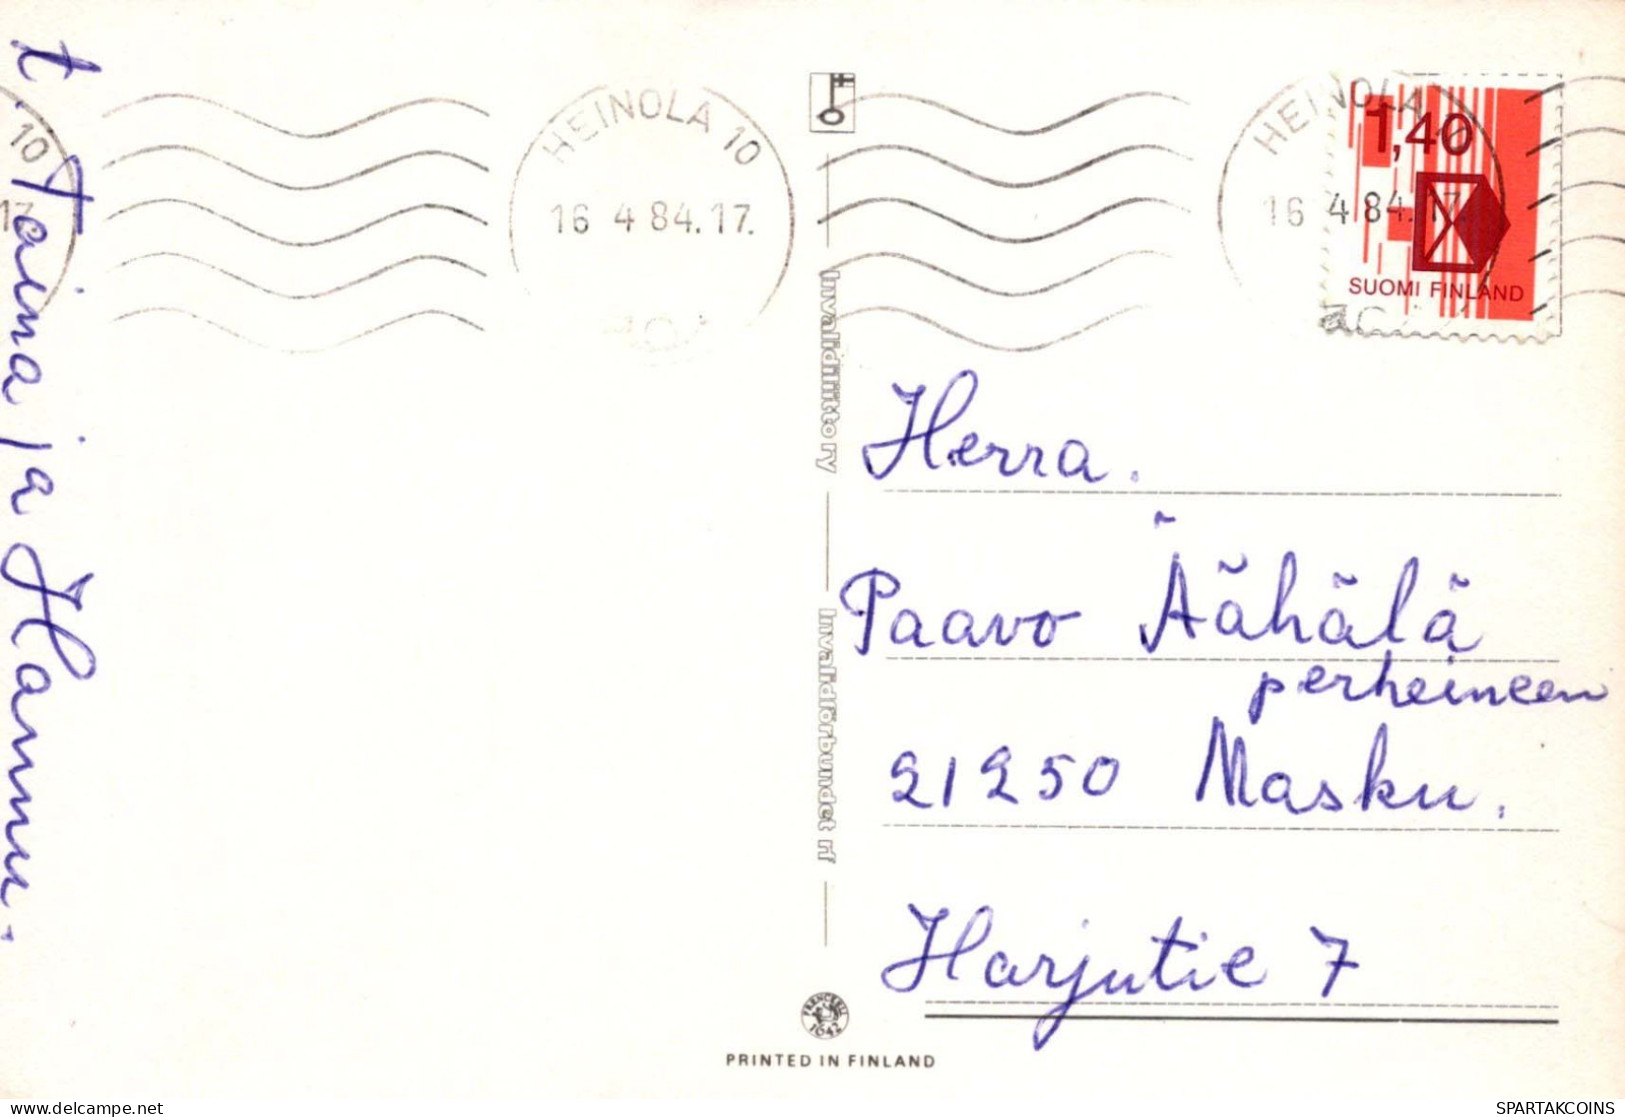 t. Taina ja Hannu.
10
17.
HEINOLA 10
16 4 84.17.
HEINOLA 10
16 4 84.17.
1,40
SUOMI FINLAND
Invalidiliitto ry
Invalidförbundet rf
Herra.
Paavo Äähälä
perheineen
21250 Masku.
Harjutie 7
1642
PRINTED IN FINLAND
SPARTAKCOINS